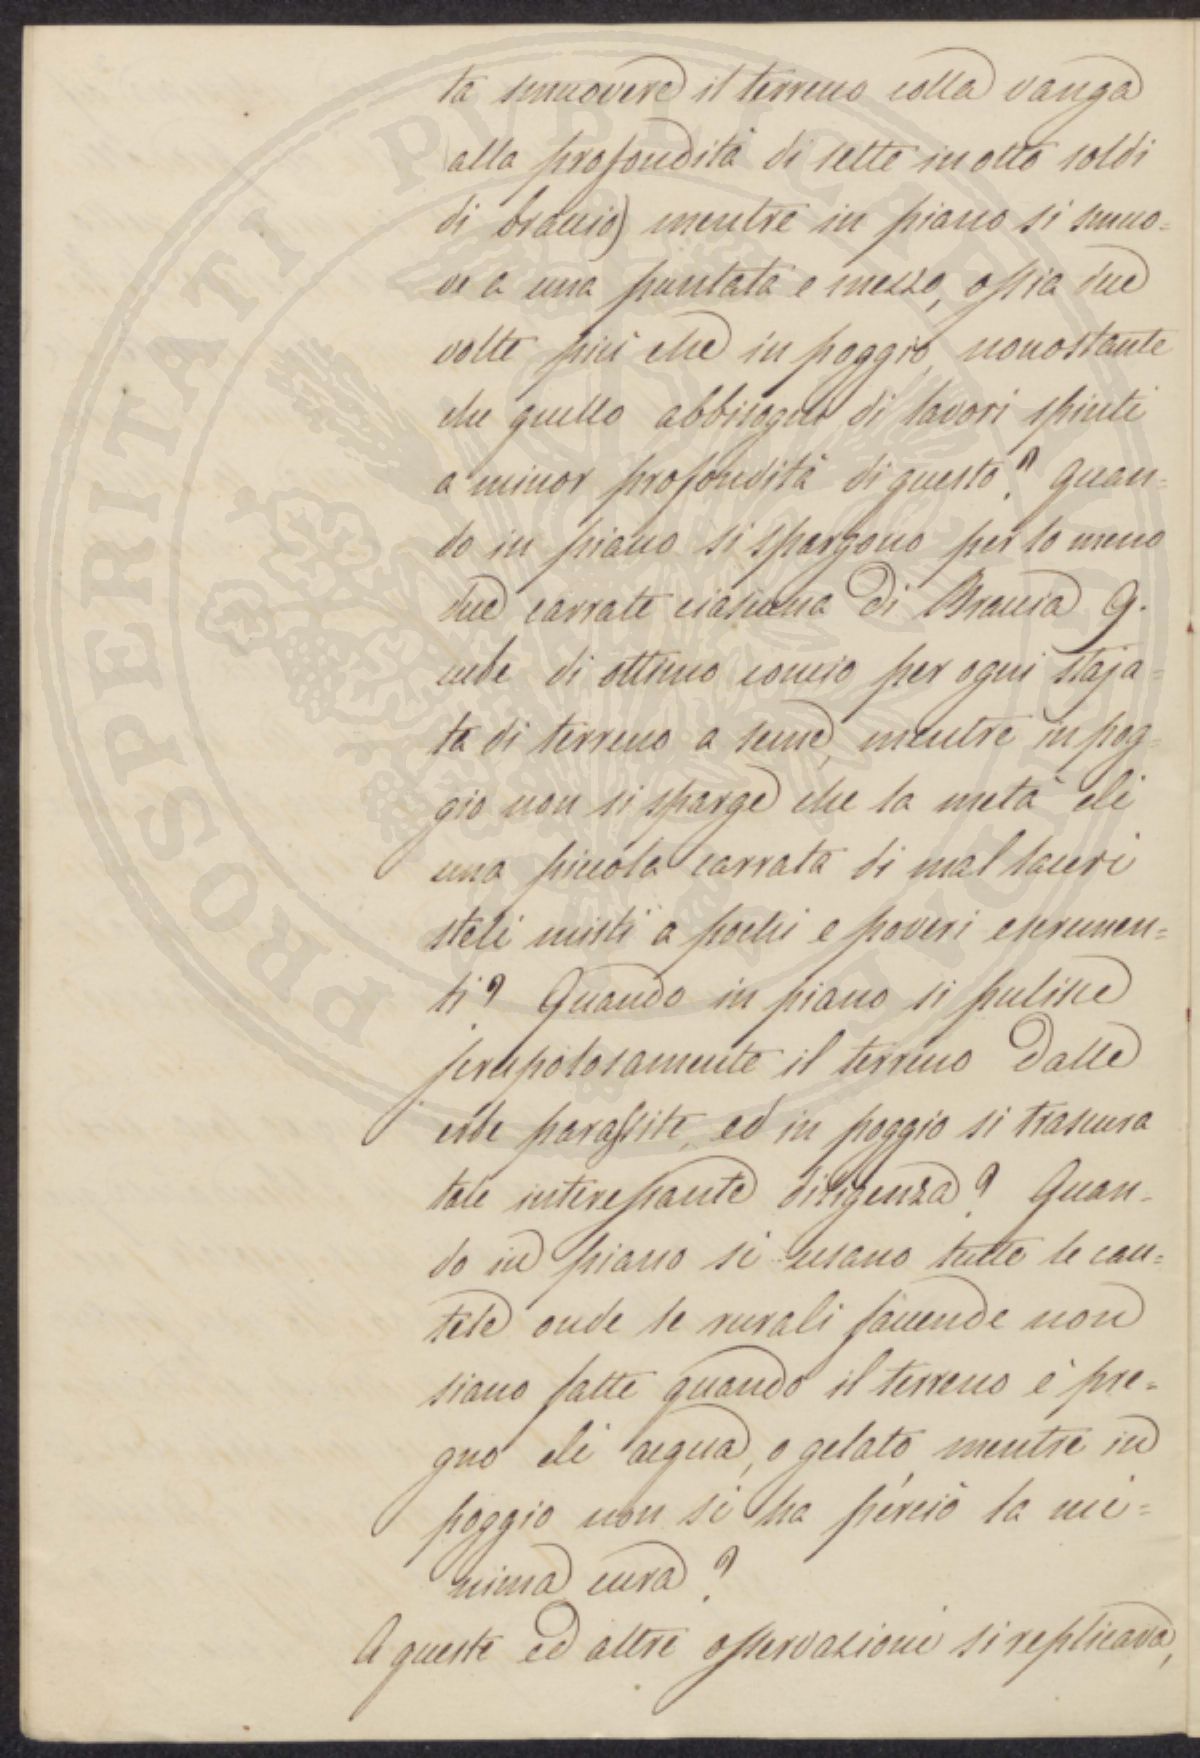 ta smuovere il terreno colla vanga
(alla profondità di sette in otto soldi
di braccio) mentre in piano si smuo=
ve a una puntata e mezzo, ossia due
volte più che in poggio, nonostante
che quello abbisogni di lavori spinti
a minor profondità di questo? Quan=
do in piano si spargono per lo meno
due carrate ciascuna di Braccia 9.
cube di ottimo concio per ogni staja=
ta di terreno a seme, mentre in pog=
gio non si sparge che la metà di
una piccola carrata di mal laceri
steli misti a pochi e poveri escrumen=
ti? Quando in piano si pulisce
scrupolosamente il terreno dalle
erbe parassite, ed in poggio si trascura
tale interessante diligenza? Quan=
do in piano si usano tutte le cau=
tele onde le rurali faccende non
siano fatte quando il terreno è pre=
gno di acqua, o gelato mentre in
poggio non si ha perciò la mi=
nima cura?
A queste ed altre osservazioni si replicava,
PROSPERITATI PUBLICAE AUGENDAE